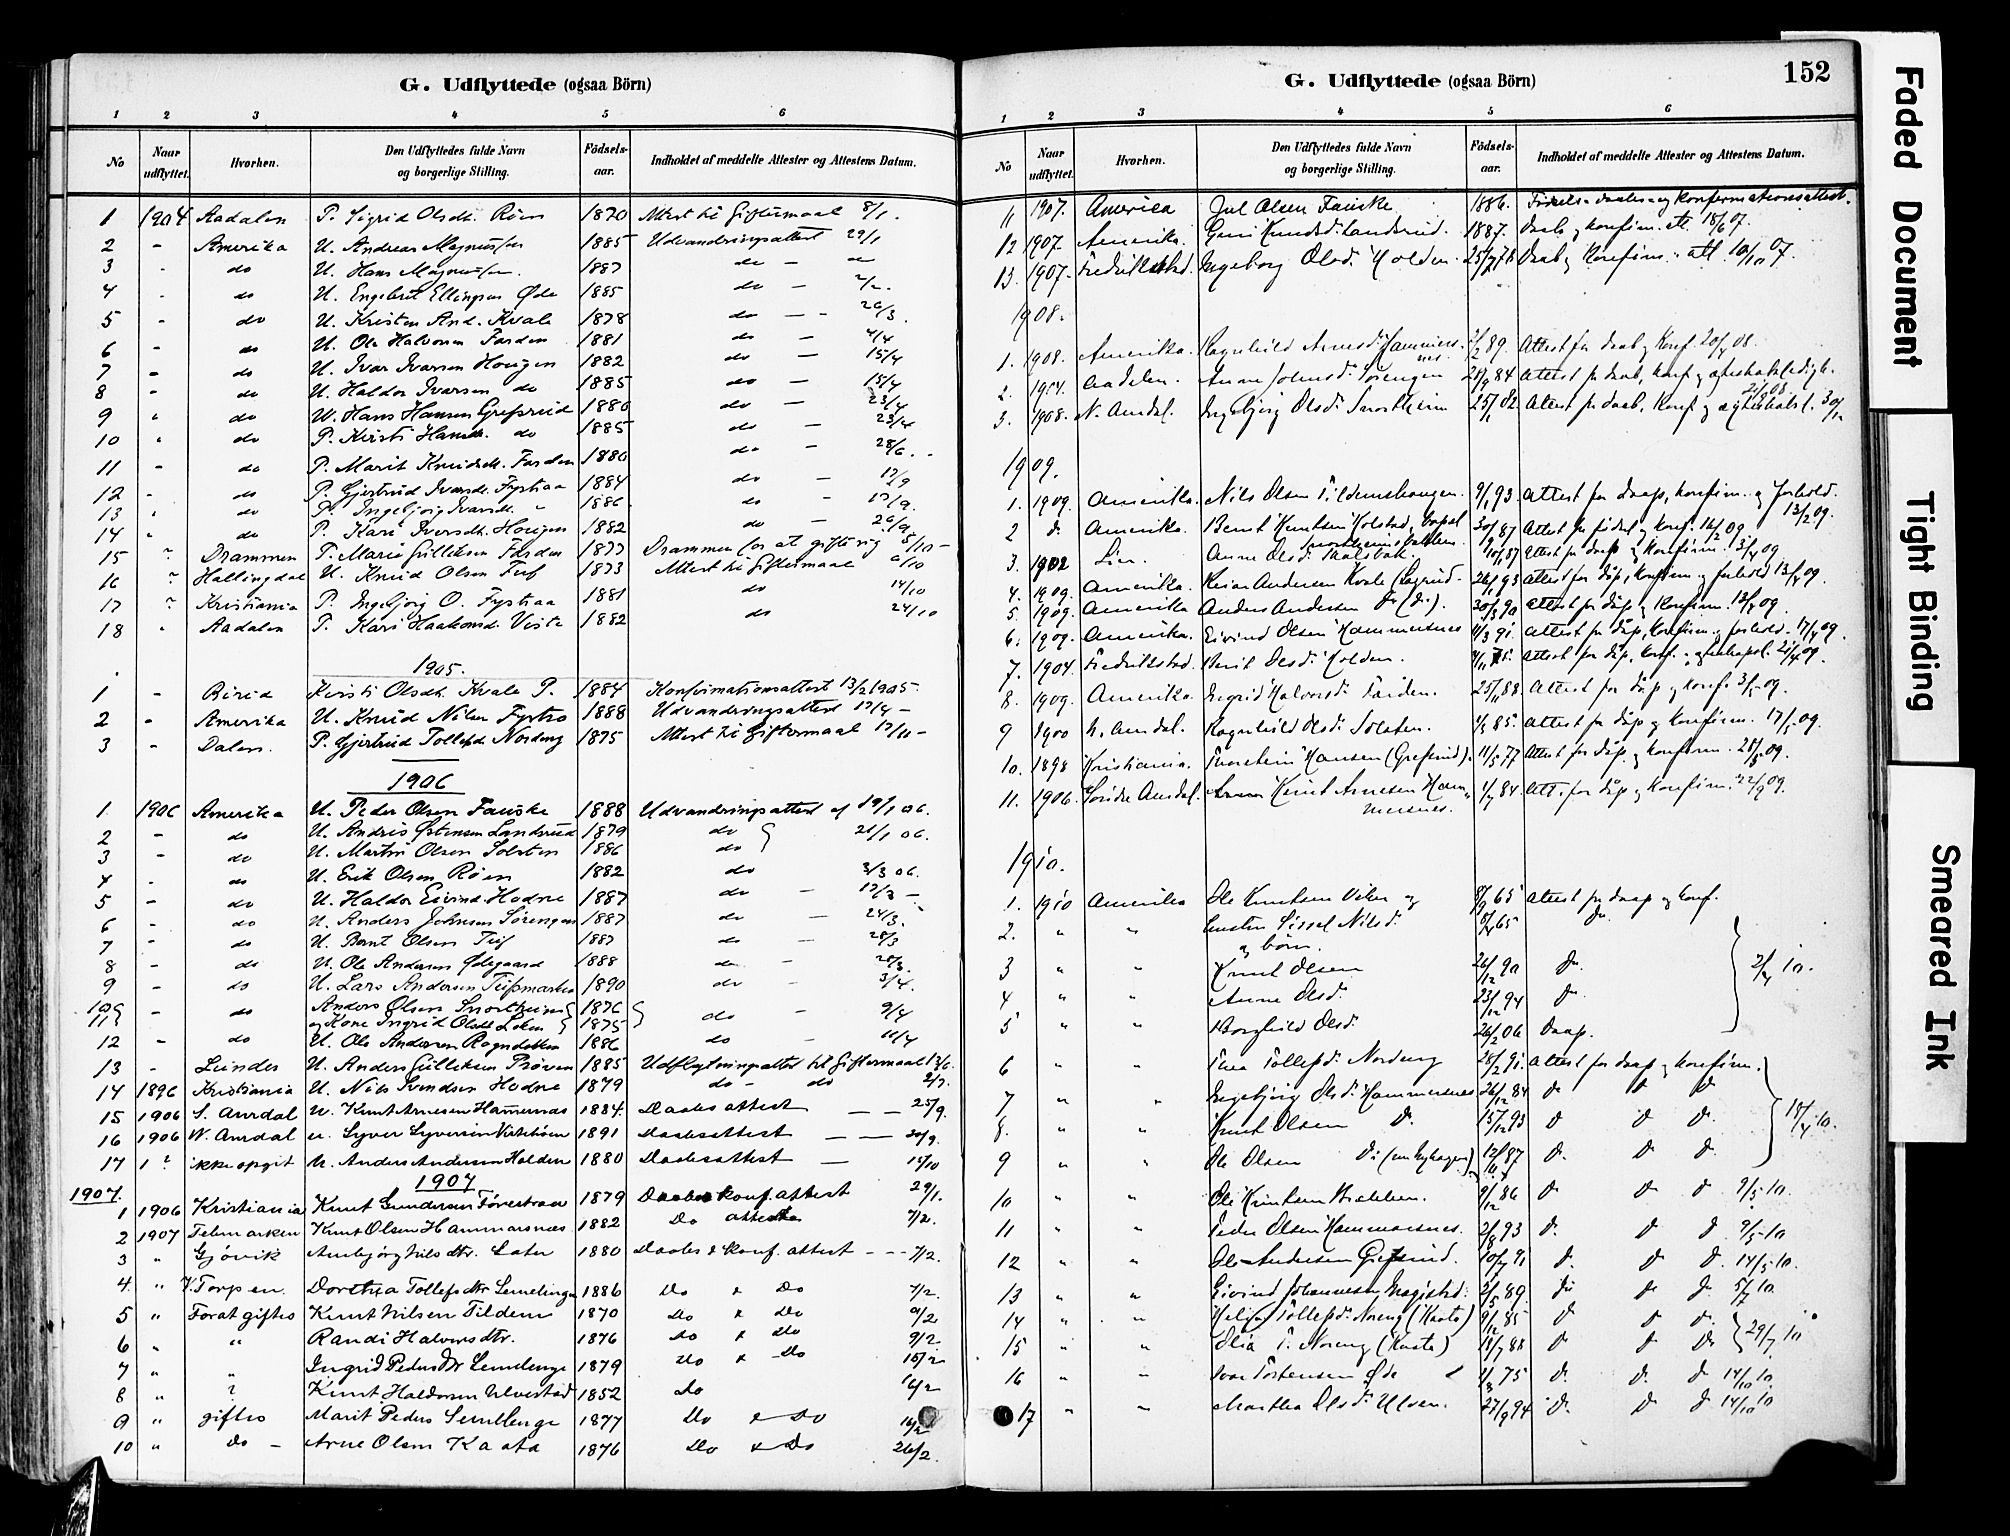 G. Udflyttede (ogsaa Börn)
1 2 3 4 5 6
No Naar udflyttet. Hvorhen. Den Udflyttedes fulde Navn og borgerlige Stilling. Födsels-aar. Indholdet af meddelte Attester og Attestens Datum.
1 1904 Aadalen P. Sigrid Olsdtr. Röen 1870 Attest til Giftermaal 8/1.
2 - Amerika U. Andreas Magnussen 1885 Udvandringsattest 29/1
3 - do U. Hans Magnussen 1887 do - do
4 - do U. Engebret Ellingsen Øde 1885 do - 2/2.
5 - do U. Kristen And. Kvale 1878 do - - 26/3.
6 - do U. Ole Halvorsen Farden 1881 do - 4/4
7 - do U. Ivar Ivarsen Hougen 1882 do - 15/4
8 - do U. Haldor Ivarsen do 1885 do - 15/4
9 - do U. Hans Hansen Grefsrud 1880 do - 23/4
10 - do P. Kirsti Hansdtr. do 1885 do - 23/4
11 - do P. Marit Knudsdtr. Farden 1880 do - 28/6.
12 - do P. Gjertrud Ivarsdtr. Fystraa 1884 do - 17/9
13 - do P. Ingebjörg Ivarsdtr. " 1886 do - 17/9.
14 - do P. Kari Iversdtr. Hougen 1882 do - 26/9
15 " Drammen P. Marie Gulliksen Farden 1877 Drammen for at gifte sig 5/10 -
16 " Hallingdal U. Knud Olsen Tuf 1873 Attest til Giftermaal 6/10
17 " Kristiania P. Ingebjörg O. Fystraa 1881 do 14/10
18 " Aadalen P. Kari Haakonsd. Viste 1882 do 24/10
1905.
1 - Birid Kirsti Olsdtr. Kvale P. 1884 Konfirmationsattest 13/2 1905.
2 - Amerika U. Knud Nilsen Fystro 1888 Udvandringsattest 17/4 -
3 - Dalen. P. Gjertrud Tollefsd. Nordeng 1875 Attest til Giftermaal 17/11 -
1906
1 1906 Amerika U. Peder Olsen Fauske 1888 Udvandringsattest af 19/1 06.
2 - do U. Andris Østensen Landsrud 1879 do } 21/1 06.
3 - do U. Martin Olsen Solsten 1886 do
4 - do U. Erik Olsen Röen 1882 do 3/3 06.
5 - do U. Haldor Eivind. Hodne 1887 do - 17/3 -
6 - do U. Anders Johnsen Sörengen 1887 do - 24/3.
7 - do U. Bernt Olsen Tuf 1887 do - 28/3
8 - do U. Ole Andersen Ødegaard 1888 do - 28/3.
9 - do U. Lars Andersen 1890 do - 3/4.
10 - do Anders Olsen Snortheim 1876
11 og Kone Ingrid Olsdtr. Löken 1875 do - 9/4
12 - do U. Ole Andersen 1886 do - 11/4
13 - Lunder U. Anders Gulliksen Pröven 1885 Udflytningsattest til Giftermaal 13/6.
14 1896 Kristiania U. Nils Svendsen Hodne 1879 do - do 2/7.
15 1906 S. Aurdal U. Knut Arnesen Hammersnes 1884. Daabsattest - - 25/9.
16 1906 N. Aurdal U. Syver Syversen 1891 Daabsattest - - 30/9.
17 1 ? ikke opgit U. Anders Andersen Holden 1880 Daabsattest - 15/10
1907
1907.
1 1906 Kristiania Knut Gundersen 1879 Daabs & konf. attest 29/1.
2 1907 Telemarken Knut Olsen Hammarsnæs 1882 Do attester 7/2.
3 " Gjövik Ambjörg Nilsdtr. 1880 Daabs & konf. attest - - - 7/2.
4. " V. Torpen. Dorthea Tollefsdtr Semelenge 1886 Do & Do 7/2.
5 " Forat giftes Knut Nilsen Tildem 1870 Do & Do 9/2
6 " " Randi Halvorsdtr. 1876 Do & Do 9/2
7 " " Ingrid Pedersdtr Semelenge 1879 Do & Do 15/2
8 " ? Knut Haldorsen Ulvestad 1852 Do 16/2
9 " giftes Marit Peders Semelenge 1877 Do & Do 16/2
10 " Do - Arne Olsen Kaata 1876 Do & Do 26/2.
G. Udflyttede (ogsaa Börn)
152
1 2 3 4 5 6
No Naar udflyttet. Hvorhen. Den Udflyttedes fulde Navn og borgerlige Stilling. Födsels-aar. Indholdet af meddelte Attester og Attestens Datum.
11 1907. America Jul Olsen Fauske 1886. Födsels- daabs- og Konfirmationsattest.
12 1907. Amerika. Guri Knudsd. Landsrud. 1887. Daab og konfirm. att. 18/6 07.
13. 1907. Fredrikstad. Ingeborg Olsd. Holden. 78 Daab og Konfirm. att. 10/10 07.
1908.
1. 1908. Amerika. Ragnhild Arnesd. Hammersnes. 89. Attest for daab og Konf. 20/4 08.
2. 1904. Aadalen. Anne Johnsd. Sörengen 84 Attest for daab, konf og ægteskabsledigh. 08.
3. 1908. N. Aurdal. Ingebjörg Olsd. Snortheim 25/1 82. Attest for daab, Konf og ægteskabsl. 30/12
1909.
1. 1909. Amerika. Nils Olsen Tildemshaugen. 9/1 93. Attest for daap, konfirm. og forhold. 13/2 09.
2 d. Amerika. Bernt Knutsen Kolstad, 30/9 87 Attest for födsel og konf. 16/2 09
3. 1902 Lier. Anne Olsd. 87 Attest for daap og Konfirm. 3/4 09
4. 1909. Amerika. Andersen Kvale (Søgrud. 26/1 93 Attest for dåp, konfirm. og forhold 13/4 09.
5. 1909. Amerika Anders Andersen do (do). 20/3 90 Attest for dåp og konfirm. 13/4 09.
6. 1909. Amerika. Eivind Olsen Hammersnes 11/3 91. Attest for dåp, konfirm. og forhold. 17/4 09.
7. 1904. Fredrikstad. Berit Olsd. Holden. 4/11 75. Attest for dåp, konf. og 21/4 09.
8. 1909. Amerika. Ingrid Halvorsd. Farden. 25/11 88. Attest for dåp og konf. 3/5 09.
9 1900 N. Aurdal. Ragnhild Olsd. Solsten. 85. Attest for dåp og konfirm. 17/5 09.
10. 1898 Kristiania. Thorstein Hansen (Grefsrud). 11/5 77 Attest for dåp og konfirm. 28/5 09.
11. 1906. Søndre Aurdal. Knut Arnesen Hammersnes. 84. Att. for dåp og konfirm. 22/9 09.
1910.
1. 1910 Amerika Ole Knutsen Viken og 8/9 65 Attest for daap og konf.
2. " " hustru Sissel Nilsd. 65 do.
og börn.
3 " " Knut Olsen 26/12 90 do.
4 " " Anne Olsd. 23/12 94 do. } 2/4 10.
5 " " Borghild Olsd. 26/2 06 Daap.
6 " " Thea Tollefsd. Nordeng 25/2 91. Attest for daap og konfirm.
7 " " Ingebjörg Olsd. Hammersnes 26/12 84 do do do
8. " " Knut Olsen do. 15/12 93 do do do. } 18/4 10.
9 " " Ole Olsen do 12/10 87 do. do do.
10 " " Ole Knutsen Brakken. 9/12 86 do do do 9/5 10.
11 " " Peder Olsen Hammersnes. 2/8 93 do. do do 9/5-10
12 " " Ole Andersen Grefsrud. 10/7 91 do. do do. 14/5-10.
13 " " Eivind Johannessen 2/5 89. do do do. 5/7 10.
14 " " Tollefsd. Noreng (Kaata) 9/12 85 do do do. } 29/7 10
15 " " Olia T. Noreng (Kaata) 14/7 88 do do do
16 " " Ivar Torstensen Øde 75 do. do. do 14/10 10.
17 " " Martha Olsd. Ulven. 27/9 94 do. do do 14/10 10
Faded Document
Tight Binding
Smeared Ink